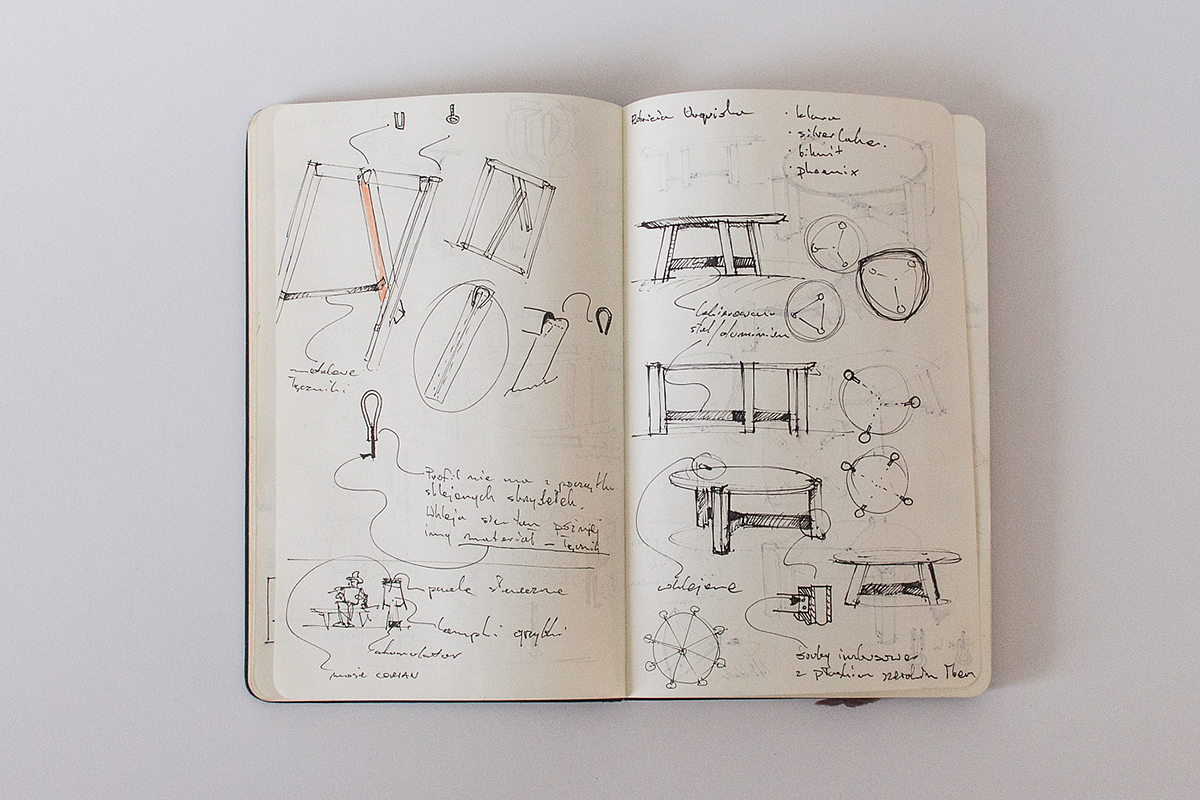 metalowe
łączniki
Profil nie ma z początku
sklejonych skrzydełek.
Wkleja się tam później
inny materiał – łącznik
panele słoneczne
lampki grzybki
akumulator
może CORIAN
Patricia Urquiola
· klara
· silver lake.
· biknit
· phoenix
lakierowana
stal/aluminium
wklejane
śruby imbusowe
z płaskim szerokim łbem